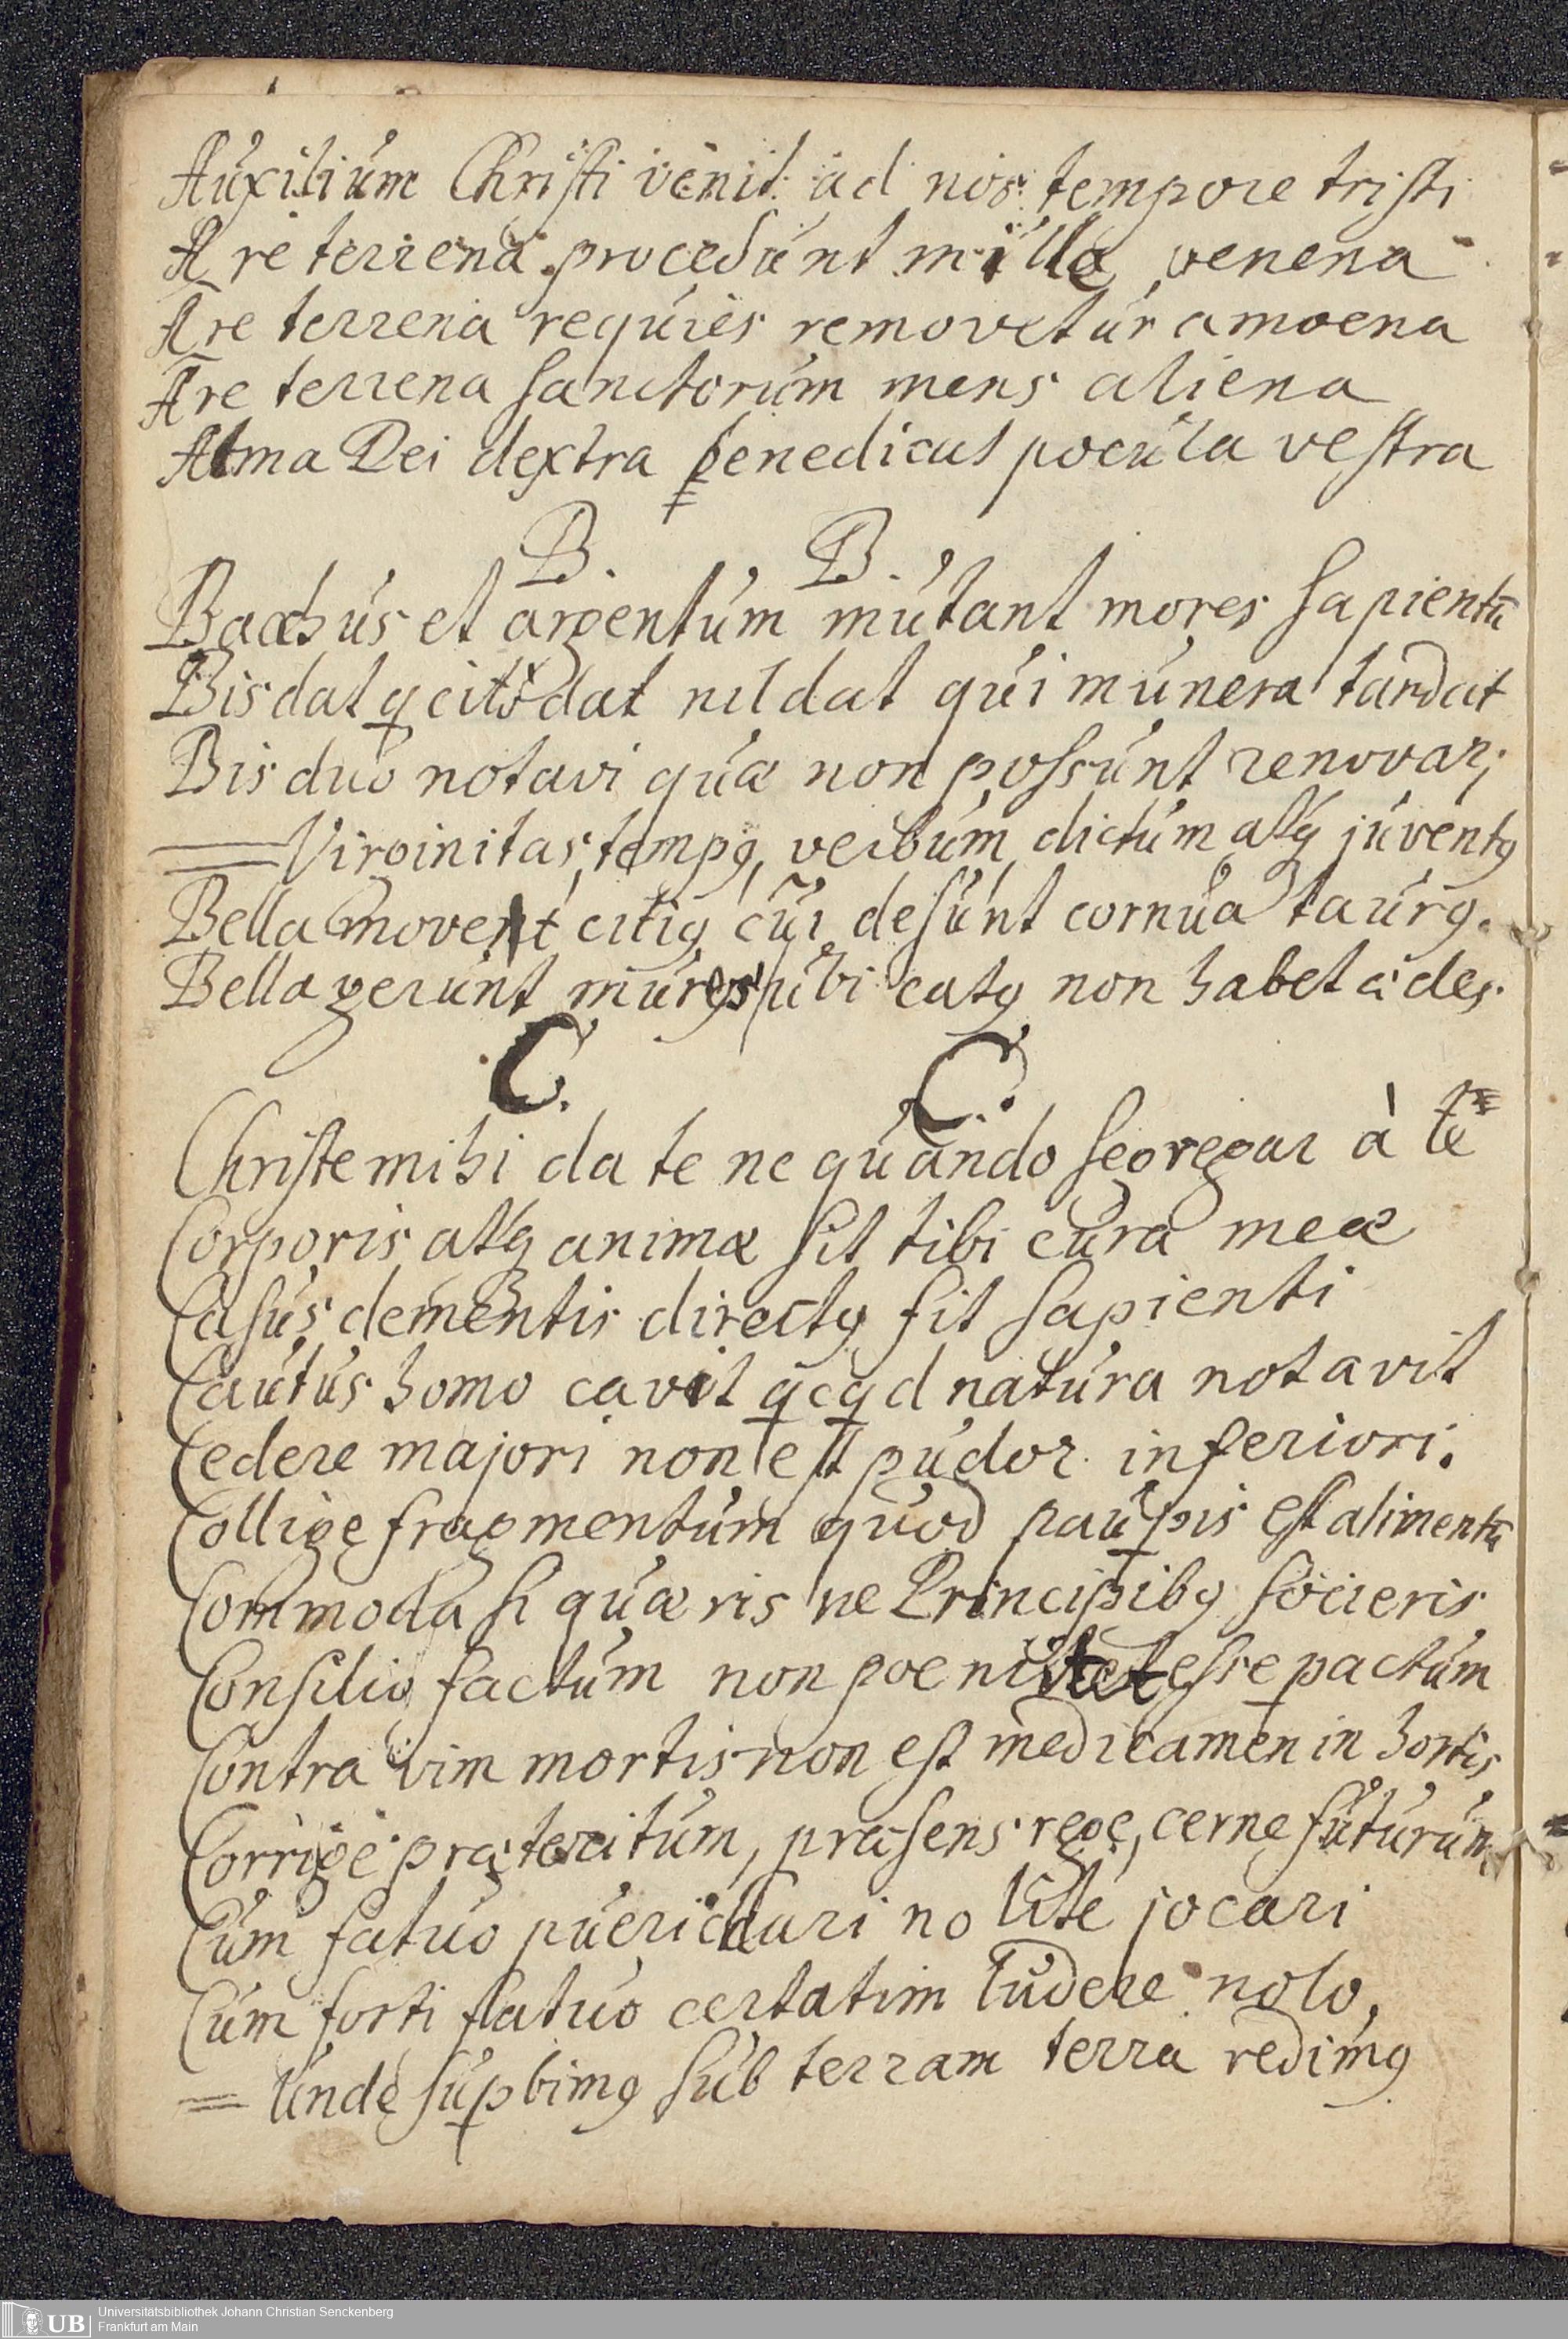 Auxilium Christi venit ad nos tempore tristi
A re terrena procedunt mille venena
A re terrena requies removetur amoena
A re terrena sanctorum mens aliena
Alma Dei dextra benedicat pocula vestra
B. B.
Bachus et argentum mutant mores sapientū
Bis dat q cito dat nil dat qui munera tardat
Bis duo notavi quæ non possunt renovari
= Virginitas, tempꝰ, verbum dictum atq juventꝰ
Bella movent citiꝰ cui desunt cornua taurꝰ.
Bella gerunt mures ubi catꝰ non habet ædes.
C. C.
Christe mihi da te ne quando segregar à te
Corporis atq animæ sit tibi cura meæ
Casus dementis directꝰ fit sapienti
Cautus homo cavit qcqd natura notavit
Cedere majori non est pudor inferiori.
Collige fragmentum quod paupis est alimentū
Commoda si quæris ne Principibꝰ socieris
Consilio factum non poenitet esse pactum
Contra vim mortis non est medicamen in hortis
Corrige præteritum, præsens rege, cerne futurum
Cum fatuo pueri clari nolite jocari
Cum forti fatuo certatim ludere nolo.
= Unde supbimꝰ sub terram terra redimꝰ
UB Universitätsbibliothek Johann Christian Senckenberg
Frankfurt am Main